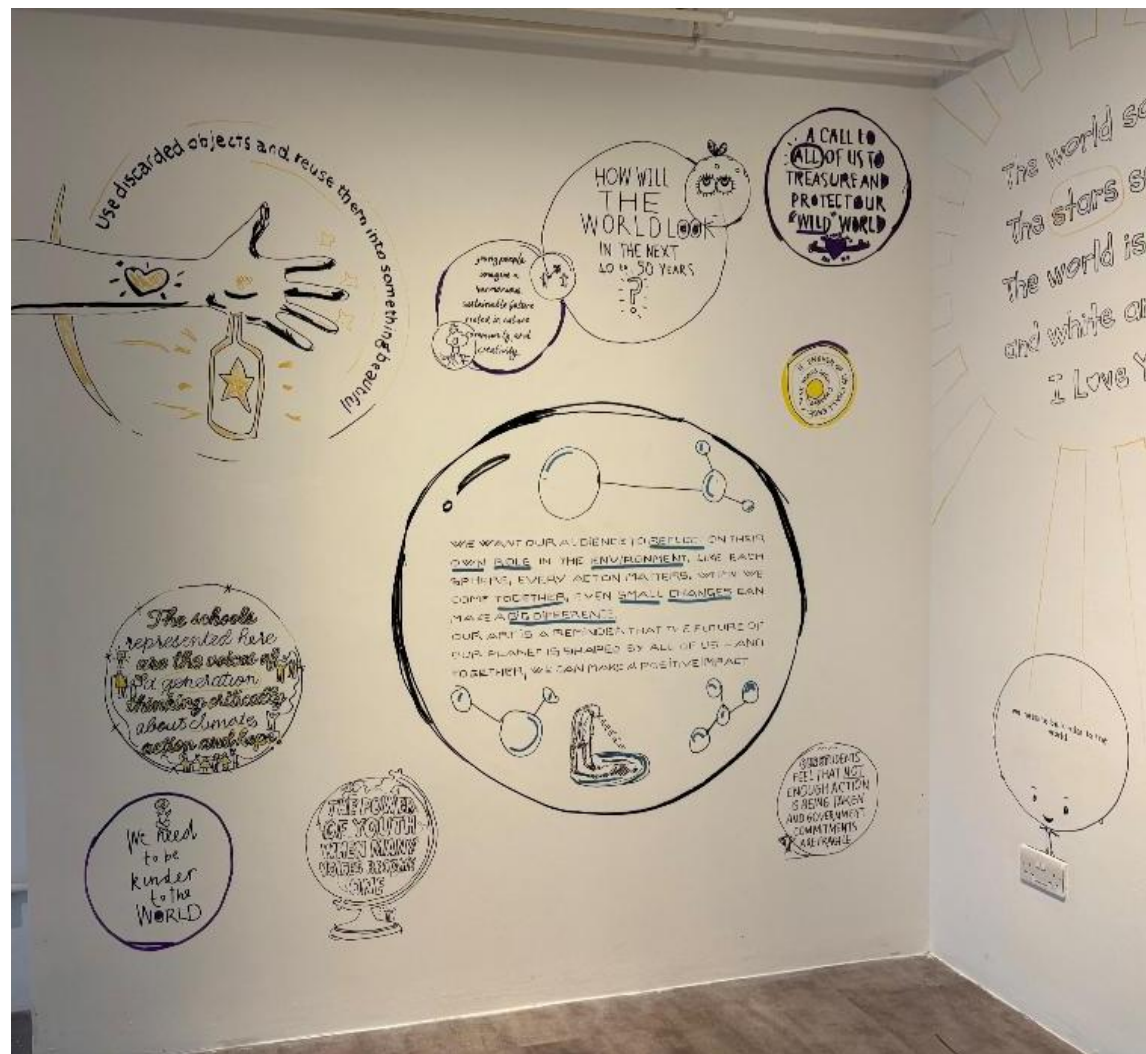 Use discarded objects and reuse them into something beautiful
HOW WILL
THE
WORLD LOOK
IN THE NEXT
10 to 50 YEARS
?
A CALL to
ALL OF US TO
TREASURE AND
PROTECT OUR
"WILD" WORLD
young people
imagine a
harmonious
sustainable future
rooted in nature
community and
creativity
WE WANT OUR AUDIENCE TO REFLECT ON THEIR
OWN ROLE IN THE ENVIRONMENT. LIKE EACH
SPHERE, EVERY ACTION MATTERS. WHEN WE
COME TOGETHER, EVEN SMALL CHANGES CAN
MAKE A BIG DIFFERENCE
OUR ART IS A REMINDER THAT THE FUTURE OF
OUR PLANET IS SHAPED BY ALL OF US - AND
TOGETHER, WE CAN MAKE A POSITIVE IMPACT
The schools
represented here
are the voices of
a generation
thinking critically
about climate
action and hope!
We need
to be
kinder
to the
WORLD
THE POWER
OF YOUTH
WHEN MANY
VOICES BECOME
ONE
STUDENTS
FEEL THAT NOT
ENOUGH ACTION
IS BEING TAKEN
AND GOVERNMENT
COMMITMENTS
ARE FRAGILE
The world
The stars
The world is
and white
I Love
We need to be kinder to the
world